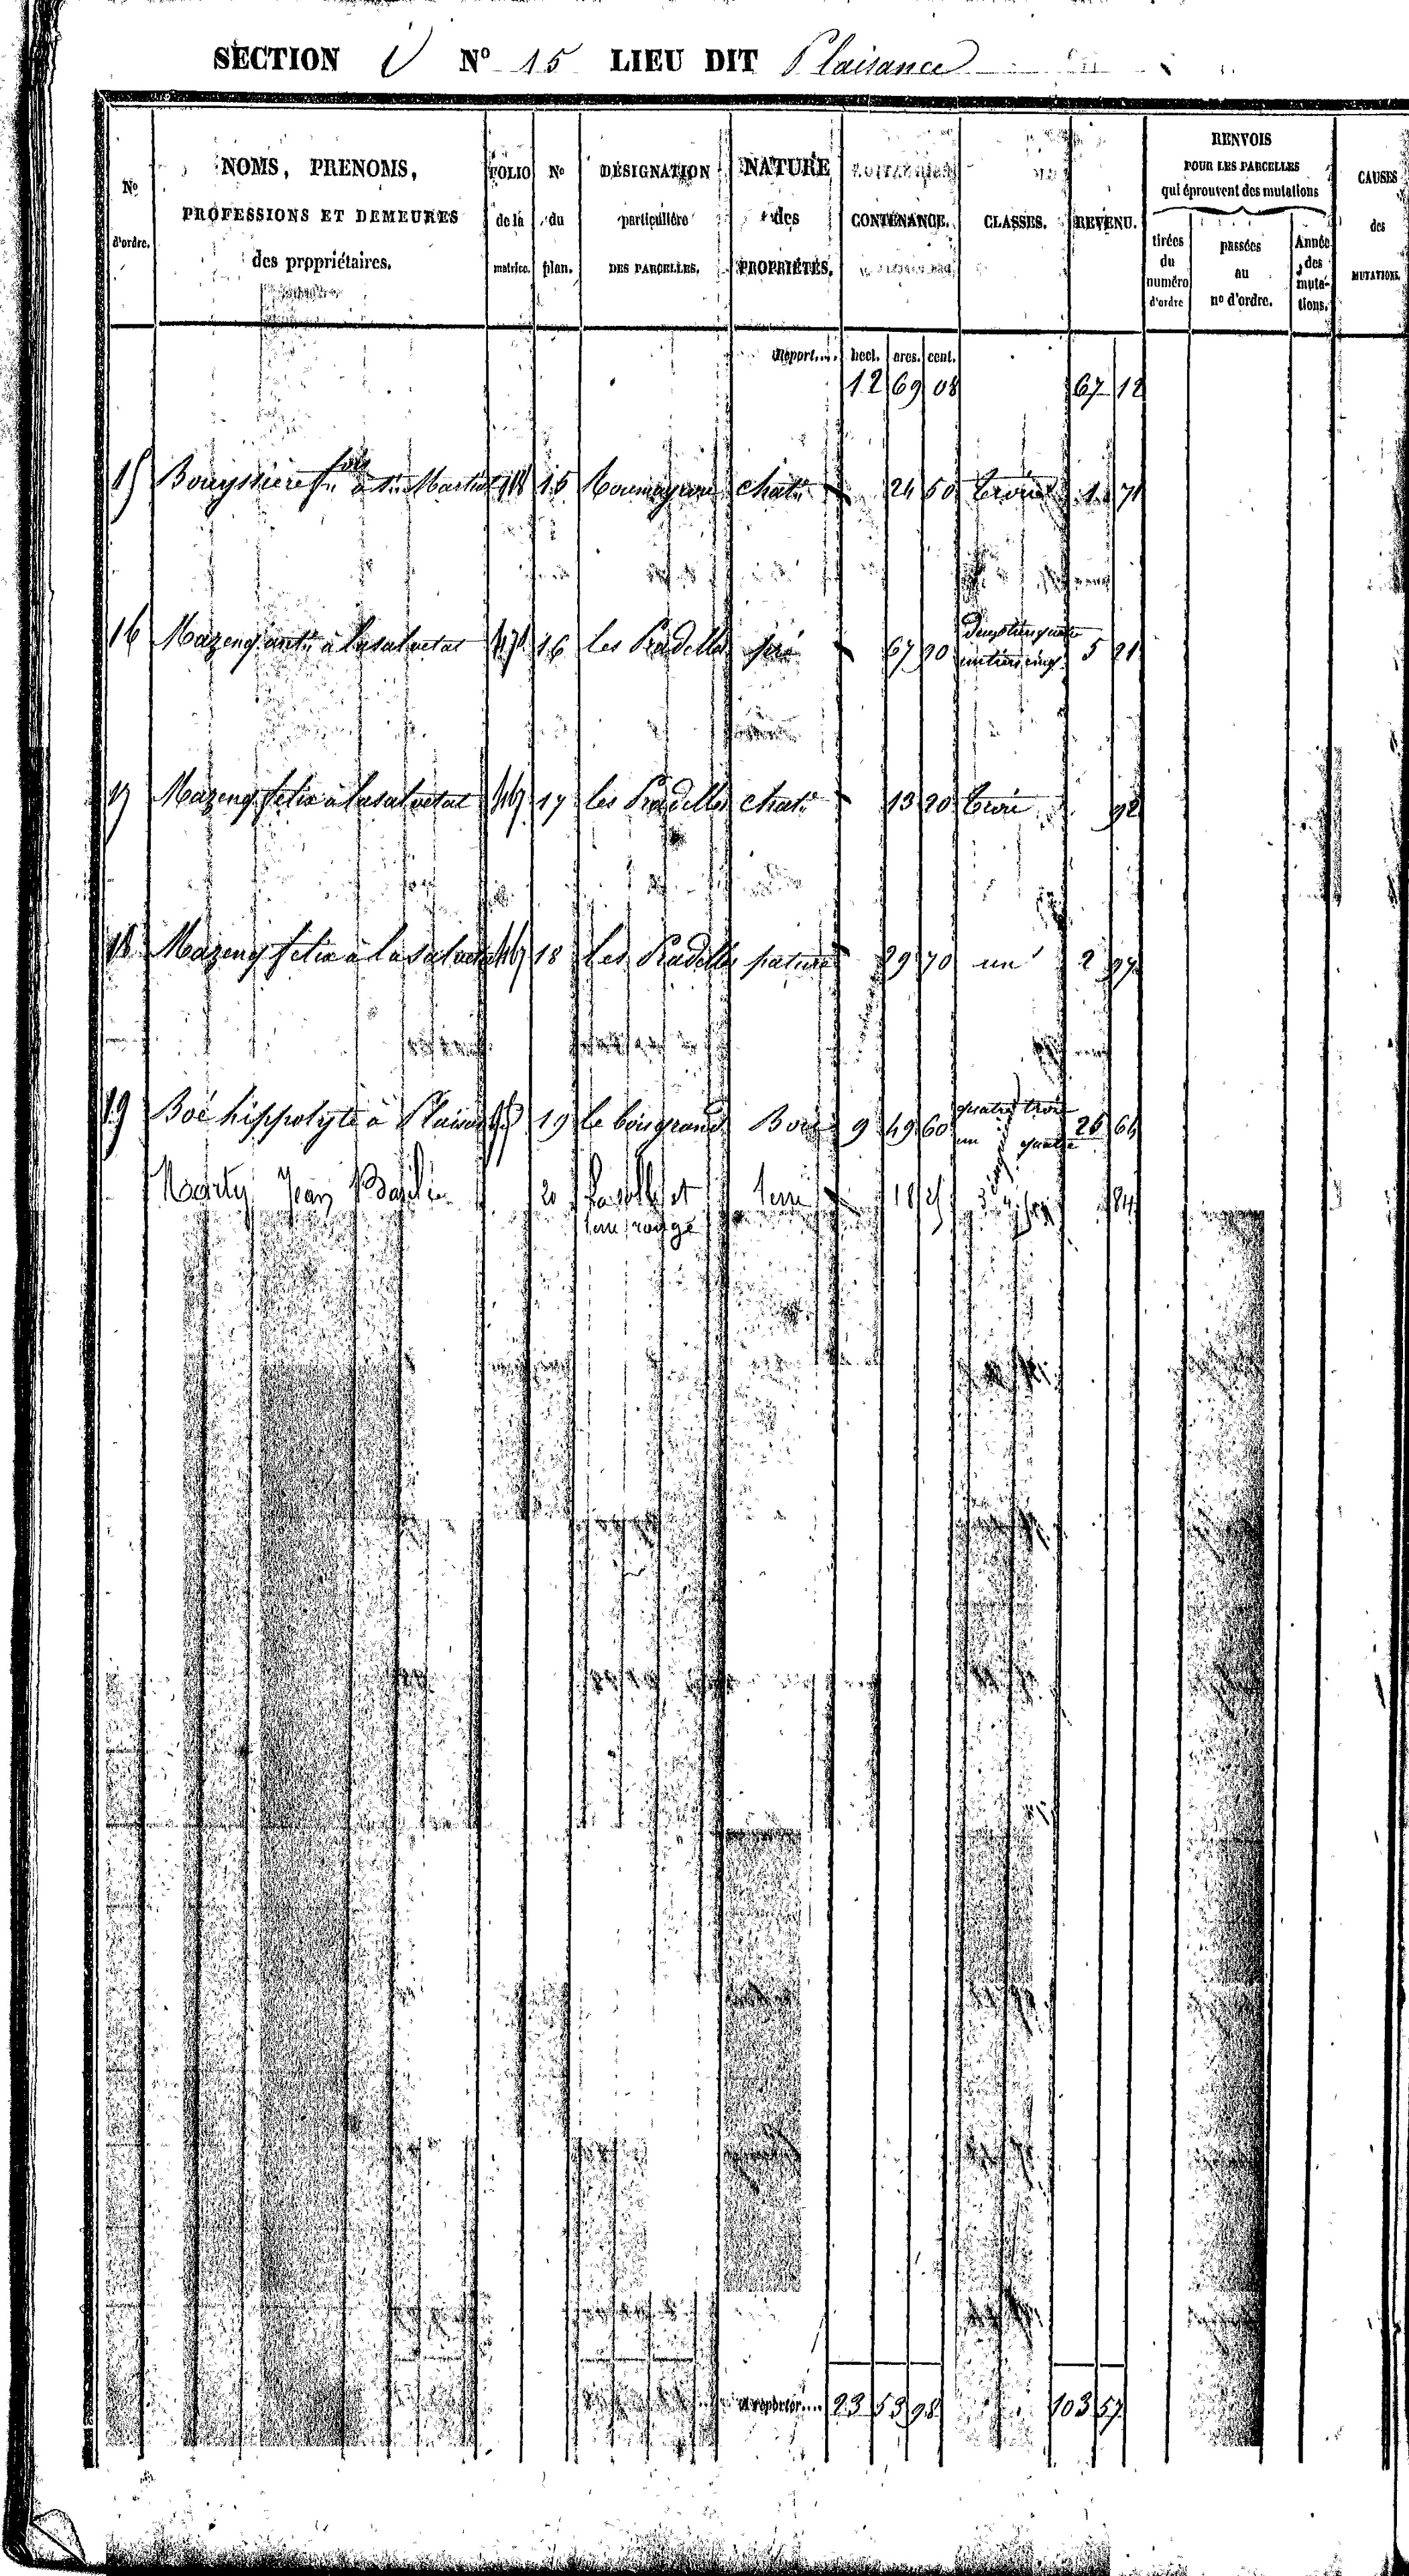 SECTION N° 15 LIEU DIT Plaisance
N° d'ordre.
NOMS, PRENOMS,
PROFESSIONS ET DEMEURES
des propriétaires.
FOLIO de la matrice.
N° du plan.
DÉSIGNATION
particulière
DES PARCELLES.
NATURE
des
PROPRIÉTÉS.
CONTENANCE.
CLASSES.
REVENU.
RENVOIS
POUR LES PARCELLES
qui éprouvent des mutations
tirées du numéro d'ordre
passées au n° d'ordre.
Année des muta-tions.
CAUSES
des
MUTATIONS.
Report.... hect. ares. cent.
12 69 08 67 12
15 Bouyssière fois à St Martial 15 chat.ne 24 50 trois 1 71
16 Mazenq ant.ne à lasalvetat 471 16 les Pradelles pré 67 20 5 21
un tiers cinq
17 Mazenq felix à lasalvetat 467 17 les Pradelles chat.ne 13 20 trois 92
18 Mazenq felix à lasalvetat 467 18 Les Pradelles pature 29 70 un 2 97
19 Boé hippolyte à Plaisance 19 le bois grand Bois 9 49 60 quatre trois 26 64
un quatre
Marty Jean 20 et terre 18 84
terre rouge
A reporter.... 23 53 98 103 57